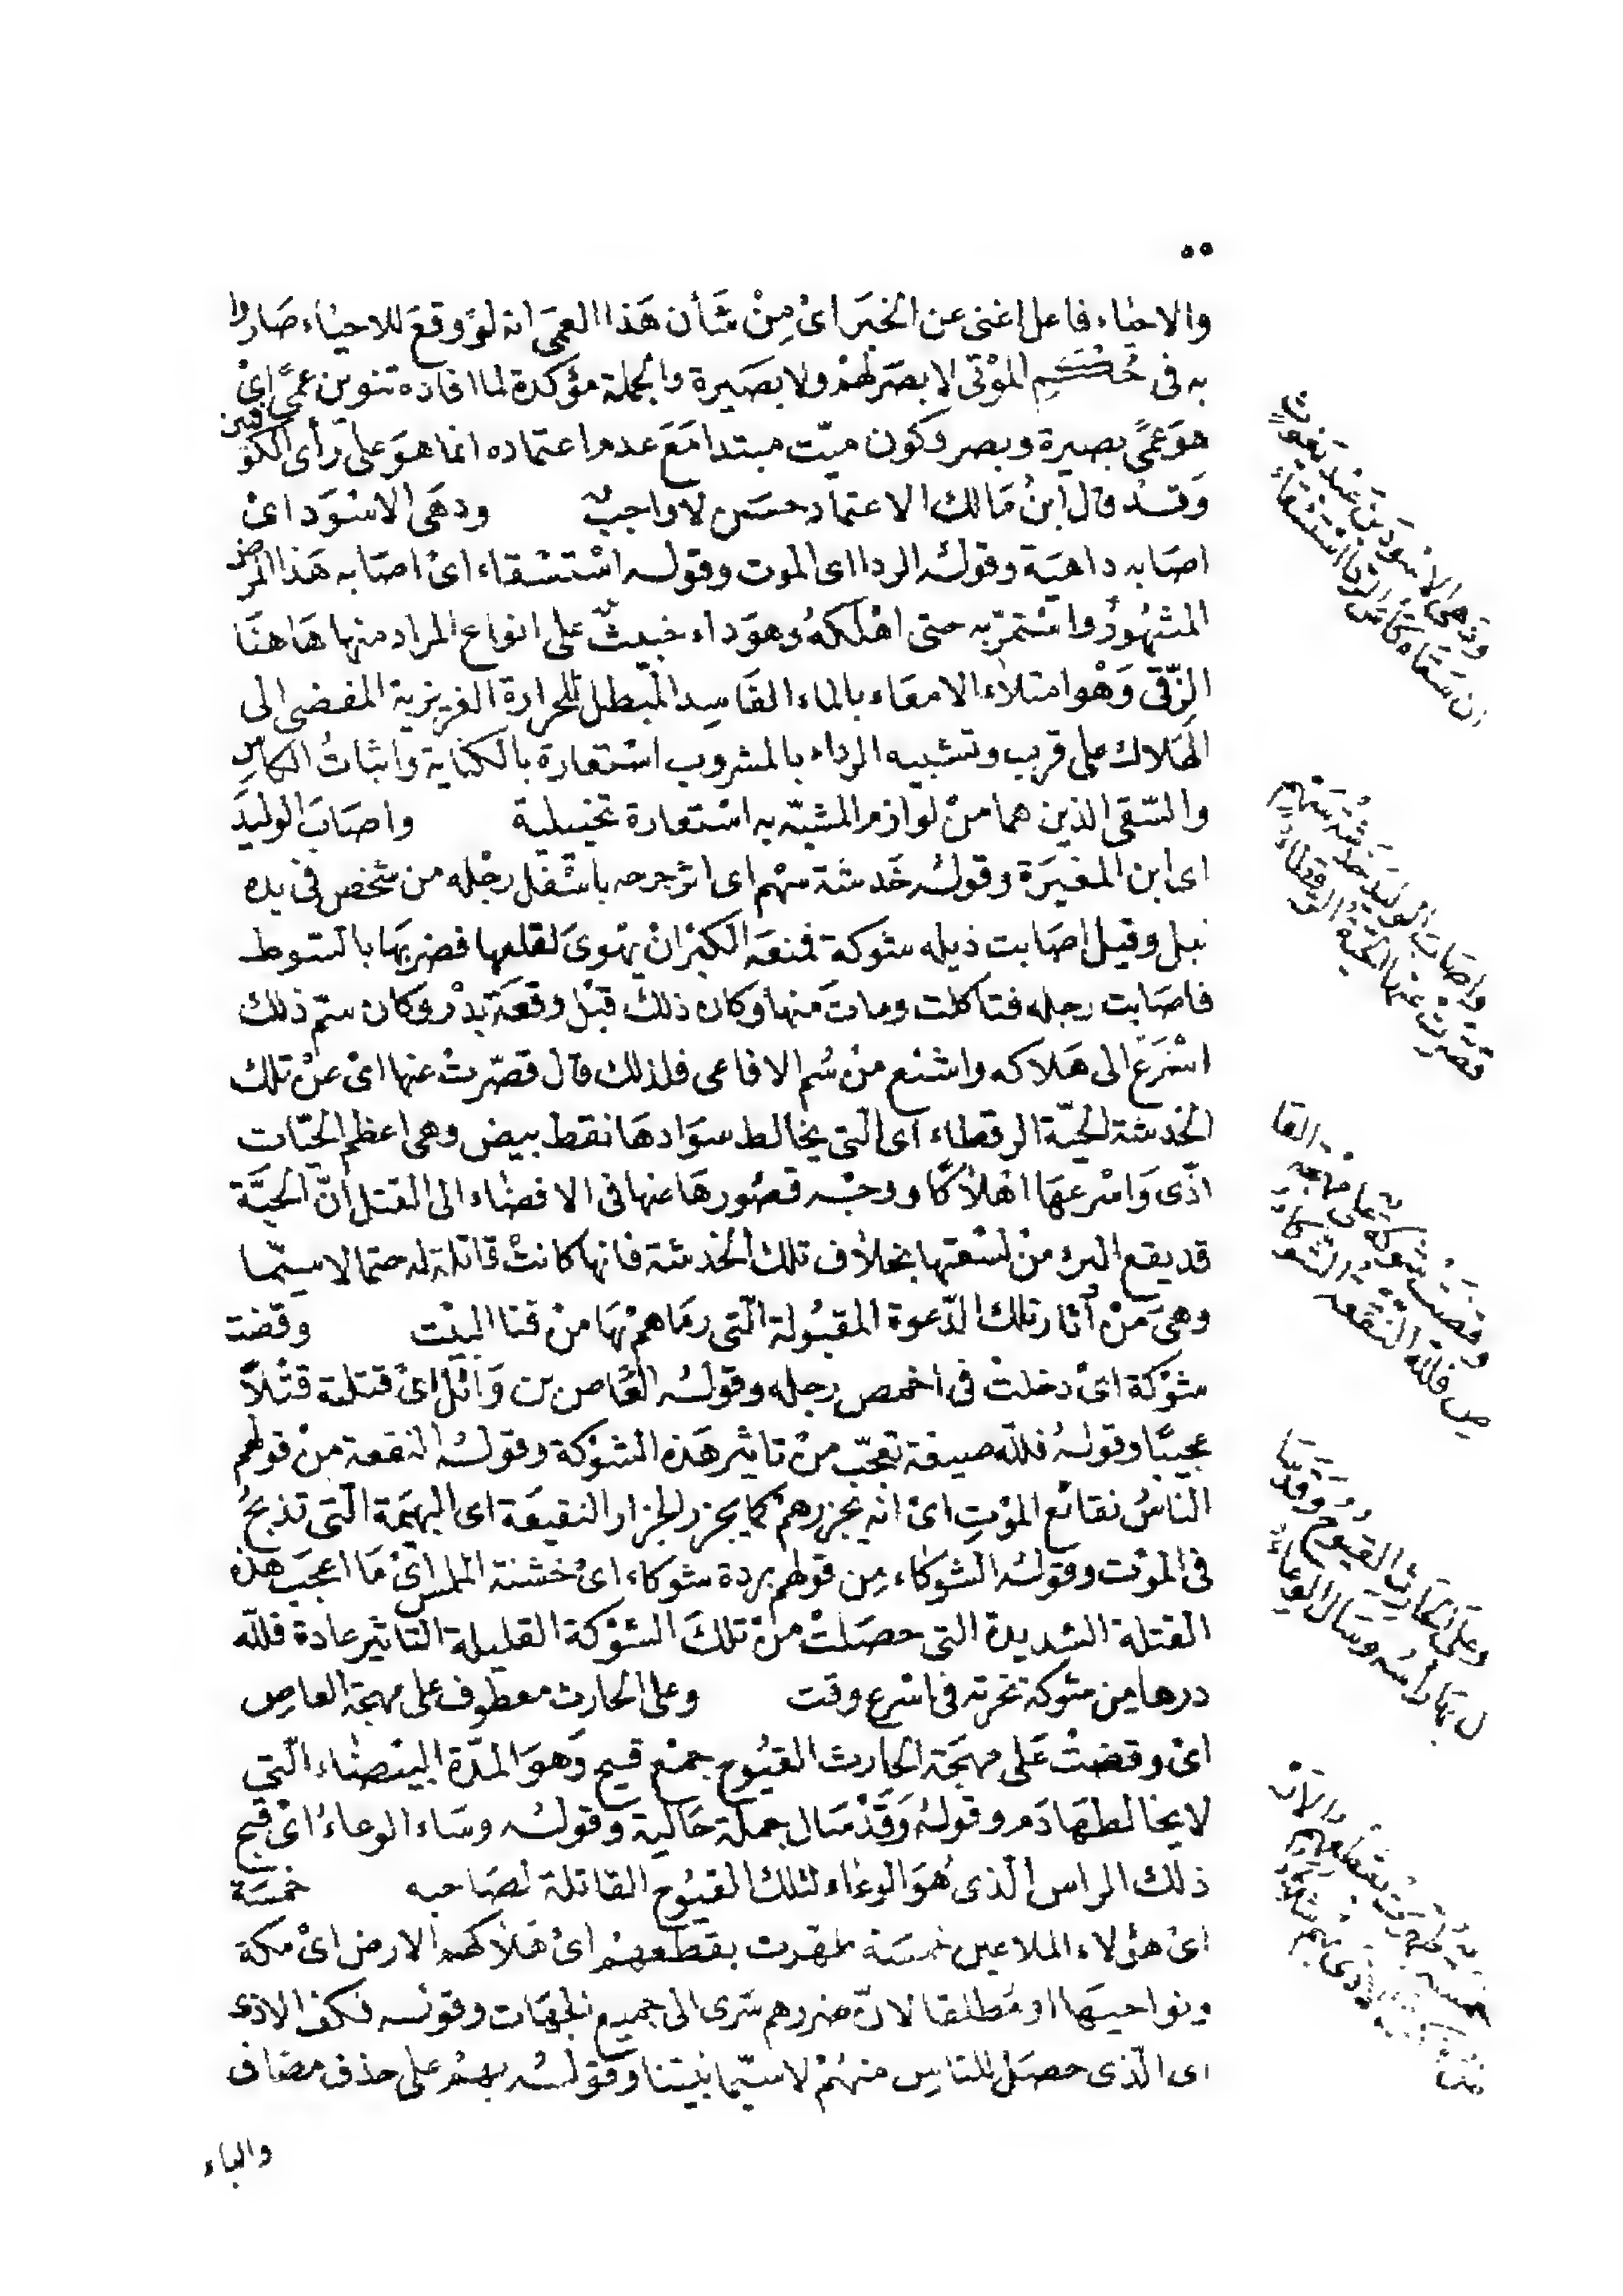 ٥٥
والاحياء فاعل اغنى عن الخبر اى من شأن هذا العمى انه لو وقع للاحياء صاروا
به فى حكم الموتى لا بصر لهم ولا بصيرة والجملة مؤكدة لما افاده تنوين عمى اى
هو عمى بصيرة وبصر وكون ميت مبتدا مع عدم اعتماده انما هو على رأى الكوفين
وقد قال ابن مالك الاعتماد حسن لا واجب ودهى الاسود اى
اصابه داهية وقوله الردا اى الموت وقوله استسقاء اى اصابه هذا المرض
المشهور واستمر به حتى اهلكه وهو داء خبيث على انواع المراد منها هاهنا
الزقى وهو امتلاء الامعاء بالماء الفاسد المبطل للحرارة الغريزية المفضى الى
الهلاك على قريب وتشبيه الرداء بالمشروب استعارة بالكناية واثبات الكاس
والسقى الذين هما من لوازم المشبه به استعارة تخييلية واصاب الوليد
اى ابن المغيرة وقوله خدشة سهم اى اثر جرحه باسفل رجله من شخص فى يده
نبل وقيل اصابت ذيله شوكة فمنعه الكبر ان يهوى لقلعها فضربها بالسوط
فاصابت رجله فتاكلت ومات منها وكان ذلك قبل وقعة بدر وكان سم ذلك
اسرع الى هلاكه واشنع من سم الافاعى فلذلك قال قصرت عنها اى عن تلك
الخدشة الحية الرقطاء اى التى يخالط سوادها نقط بيض وهى اعظم الحيات
اذى واسرعها اهلاكا ووجه قصورها عنها فى الافضاء الى القتل أن الحية
قد يقع البرء من لسعتها بخلاف تلك الخدشة فانها كانت قاتلة له حتما لا سيما
وهى من أثار تلك الدعوة المقبولة التى رماهم بها من فنا البيت وقضت
شوكة اى دخلت فى اخمص رجله وقوله العاص بن وائل اى قتلته قتلا
عجيبا وقوله فلله صيغة تعجب من تاثير هذه الشوكة وقوله النقعة من قولهم
الناس نقائع الموت اى انه يجزرهم كما يجزر الجزار النقيعة اى البهيمة التى تذبح
فى الموت وقوله الشوكاء من قولهم بردة شوكاء اى خشنة الملمس اى ما اعجب هذه
القتلة الشديدة التى حصلت من تلك الشوكة القليلة التاثير عادة فلله
درها من شوكة نحرته فى اسرع وقت وعلى الحارث معطوف على مهجة العاص
اى وقضت على مهجة الحارث القيوح جمع قيح وهو المدة البيضاء التى
لا يخالطها دم وقوله وقد سال جملة حالية وقوله وساء الوعاء اى قبح
ذلك الراس الذى هو الوعاء لتلك القيوح القاتلة لصاحبه خمسة
اى هؤلاء الملاعين خمسة طهرت بقطعهم اى هلاكهم الارض اى مكة
ونواحيها او مطلقا لان ضررهم سرى الى جميع الجهات وقوله فكف الاذى
اى الذى حصل للناس منهم لا سيما نبينا وقوله بهم على حذف مضاف
والباء
ودهى الاسود بن عبد يغوث
ان سقاه كاس الردا استسقاء
واصاب الوليد خدشة سهم
قصرت عنها الحية الرقطاء
وقضت شوكة على مهجة العا
ص فلله النقعة الشوكاء
وعلى الحارث القيوح وقد سا
ل بها رأسه وساء الوعاء
خمسة طهرت بقطعهم الار